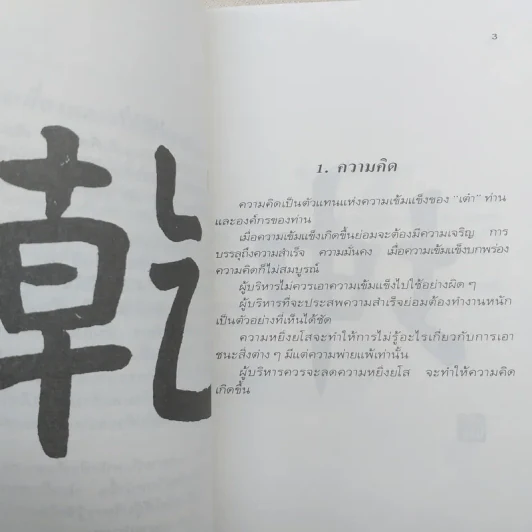 乾
3
1. ความคิด
ความคิดเป็นตัวแทนแห่งความเข้มแข็งของ "เต๋า" ท่าน
และองค์กรของท่าน
เมื่อความเข้มแข็งเกิดขึ้นย่อมจะต้องมีความเจริญ การ
บรรลุถึงความสำเร็จ ความมั่นคง เมื่อความเข้มแข็งบกพร่อง
ความคิดก็ไม่สมบูรณ์
ผู้บริหารไม่ควรเอาความเข้มแข็งไปใช้อย่างผิด ๆ
ผู้บริหารที่จะประสพความสำเร็จย่อมต้องทำงานหนัก
เป็นตัวอย่างที่เห็นได้ชัด
ความหยิ่งยโสจะทำให้การไม่รู้อะไรเกี่ยวกับการเอา
ชนะสิ่งต่าง ๆ มีแต่ความพ่ายแพ้เท่านั้น
ผู้บริหารควรจะลดความหยิ่งยโส จะทำให้ความคิด
เกิดขึ้น